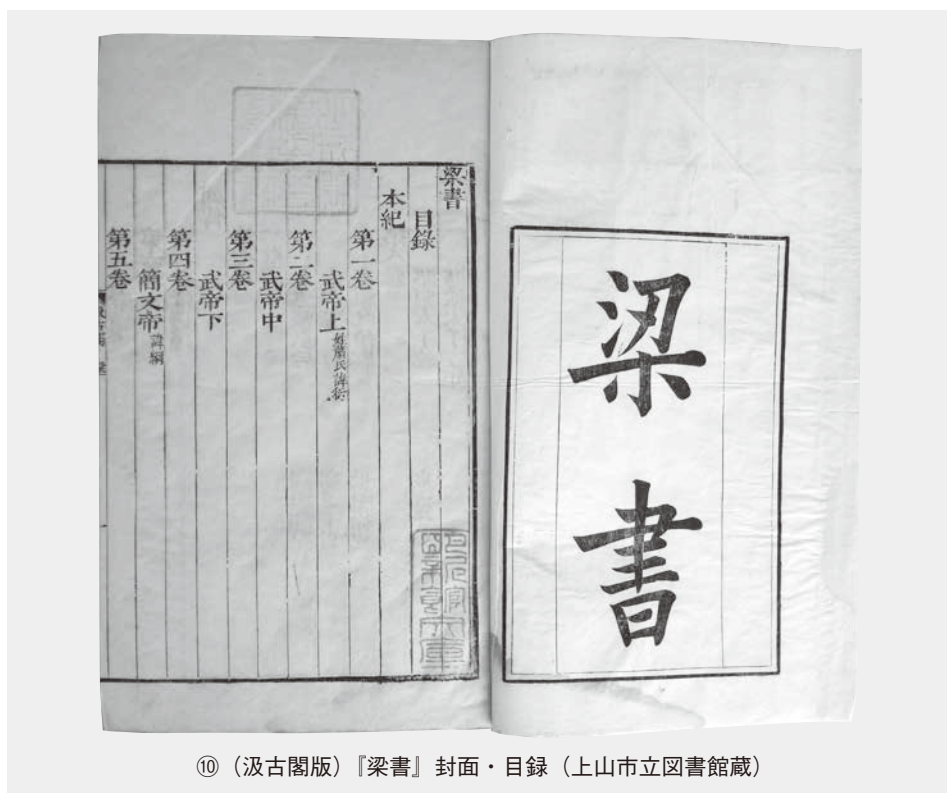 梁書
梁書
目錄
本紀
第一卷
武帝上 姓蕭氏諱衍
第二卷
武帝中
第三卷
武帝下
第四卷
簡文帝 諱綱
第五卷
⑩（汲古閣版）『梁書』封面・目録（上山市立図書館蔵）